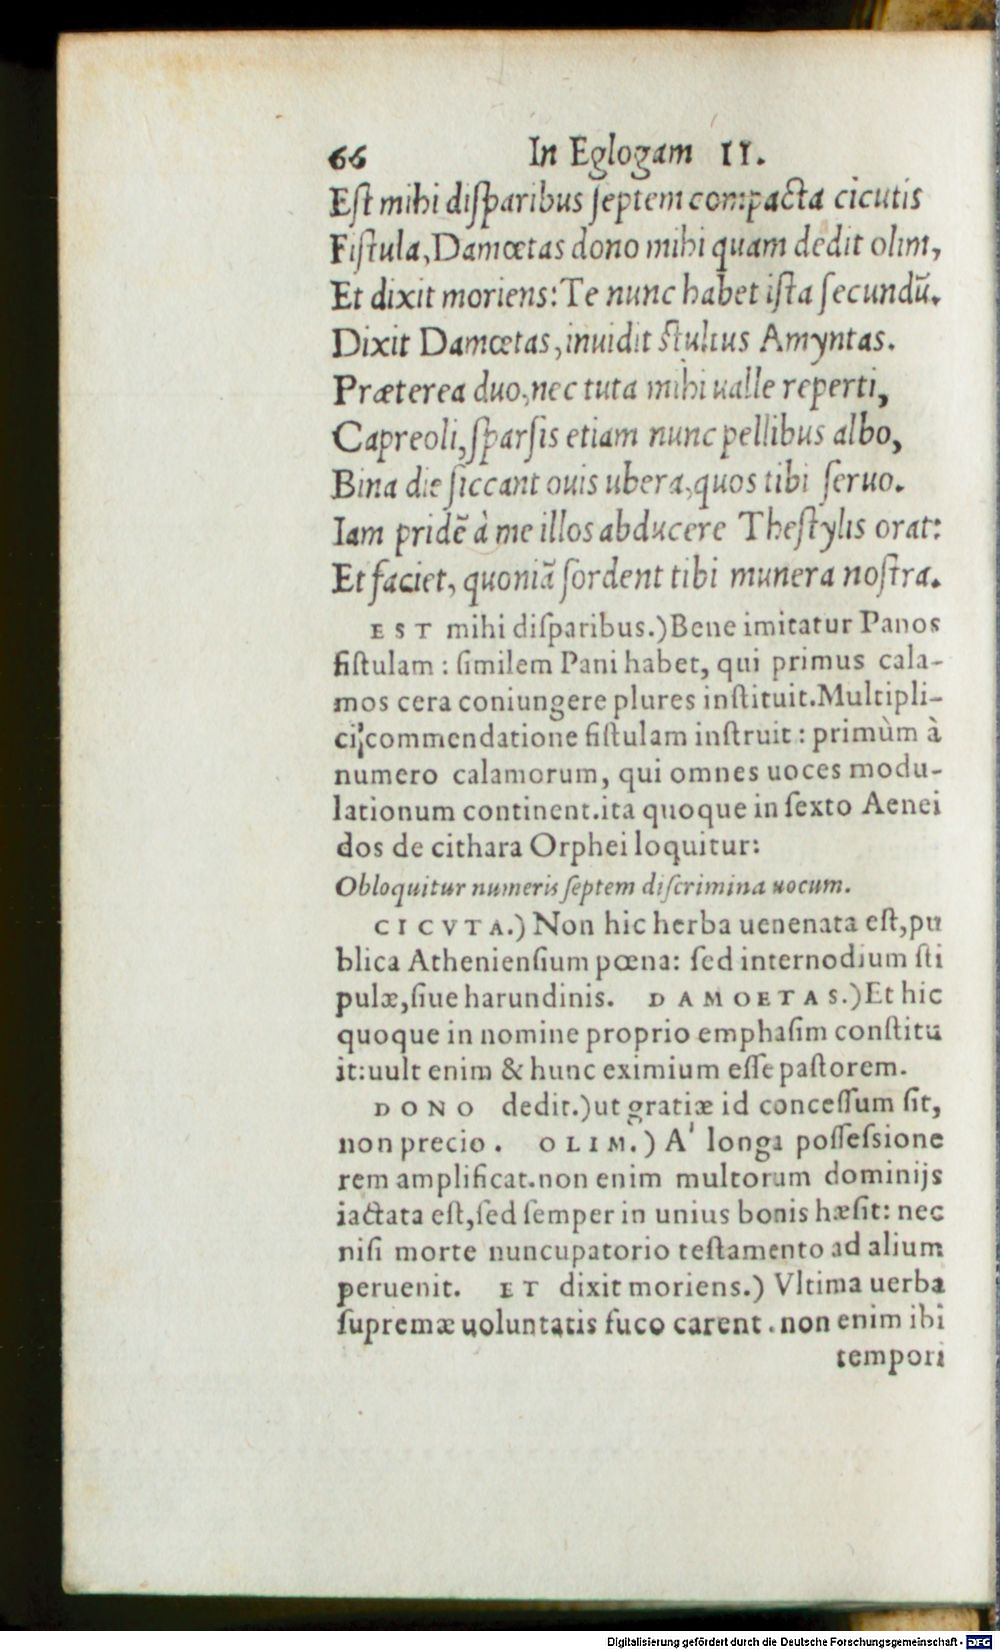 66 In Eglogam II.
Eſt mihi diſparibus ſeptem compacta cicutis
Fiſtula, Damœtas dono mihi quam dedit olim,
Et dixit moriens: Te nunc habet iſta ſecundũ.
Dixit Damœtas, inuidit ſtultus Amyntas.
Præterea duo, nec tuta mihi ualle reperti,
Capreoli, ſparſis etiam nunc pellibus albo,
Bina die ſiccant ouis ubera, quos tibi ſeruo.
Iam pridẽ à me illos abducere Theſtylis orat:
Et faciet, quoniã ſordent tibi munera noſtra.
EST mihi diſparibus.) Bene imitatur Panos
fiſtulam : ſimilem Pani habet, qui primus cala-
mos cera coniungere plures inſtituit. Multipli-
ci commendatione fiſtulam inſtruit : primùm à
numero calamorum, qui omnes uoces modu-
lationum continent. ita quoque in ſexto Aenei
dos de cithara Orphei loquitur:
Obloquitur numeris ſeptem diſcrimina uocum.
CICVTA.) Non hic herba uenenata eſt, pu
blica Athenienſium pœna: ſed internodium ſti
pulæ, ſiue harundinis. DAMOETAS.) Et hic
quoque in nomine proprio emphaſim conſtitu
it: uult enim & hunc eximium eſſe paſtorem.
DONO dedit.) ut gratiæ id conceſſum ſit,
non precio. OLIM.) A' longa poſſeſsione
rem amplificat. non enim multorum dominijs
iactata eſt, ſed ſemper in unius bonis hæſit: nec
niſi morte nuncupatorio teſtamento ad alium
peruenit. ET dixit moriens.) Vltima uerba
ſupremæ uoluntatis fuco carent. non enim ibi
tempori
Digitalisierung gefördert durch die Deutsche Forschungsgemeinschaft - DFG